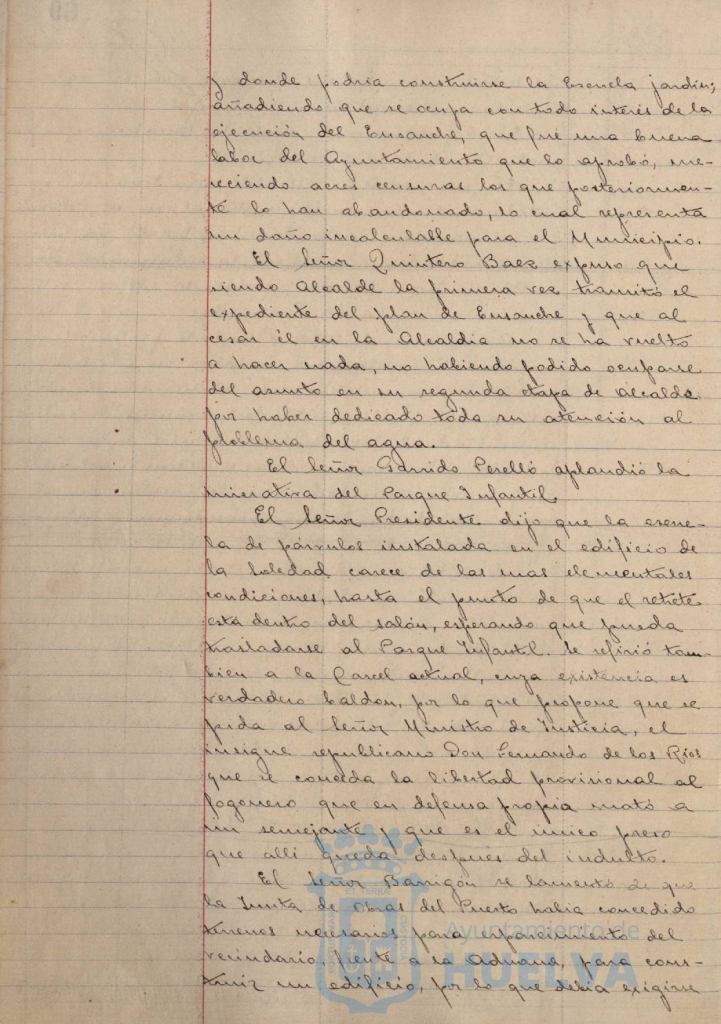 y donde podria construirse la Escuela jardin;
añadiendo que se ocupa con todo interés de la
ejecución del Ensanche, que fué una buena
labor del Ayuntamiento que lo aprobó, me-
reciendo acres censuras los que posteriormen-
te lo han abandonado, lo cual representa
un daño incalculable para el Municipio.
El Señor Quintero Baez expuso que
siendo Alcalde la primera vez tramitó el
expediente del plan de Ensanche y que al
cesar él en la Alcaldia no se ha vuelto
a hacer nada, no habiendo podido ocuparse
del asunto en su segunda etapa de Alcalde
por haber dedicado toda su atención al
problema del agua.
El Señor Garrido Perelló aplaudió la
iniciativa del Parque Infantil.
El Señor Presidente dijo que la escue-
la de párvulos instalada en el edificio de
la Soledad carece de las mas elementales
condiciones, hasta el punto de que el retrete
está dentro del salón, esperando que pueda
trasladarse al Parque Infantil. Se refirió tam-
bien a la Carcel actual, cuya existencia es
verdadero baldon, por lo que propone que se
pida al Señor Ministro de Justicia, el
insigne republicano Don Fernando de los Rios
que se conceda la libertad provisional al
fogonero que en defensa propia mató a
un semejante y que es el unico preso
que alli queda despues del indulto.
El Señor Barrigón se lamentó de que
la Junta de Obras del Puerto habia concedido
terrenos necesarios para esparcimiento del
vecindario, frente a la Aduana, para cons-
truir un edificio, por lo que debia exigirse
Ayuntamiento de
HUELVA